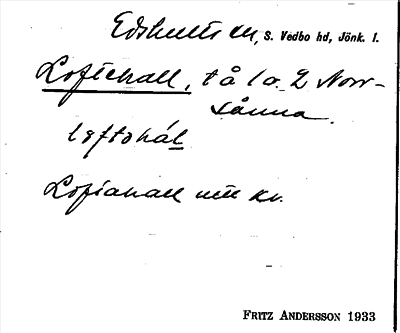 Edshults sn, S. Vedbo hd, Jönk. l.
Loftehall, t å 1 o. 2 Norr-
sånna.
loftəhál
Loftahall
FRITZ ANDERSSON 1933